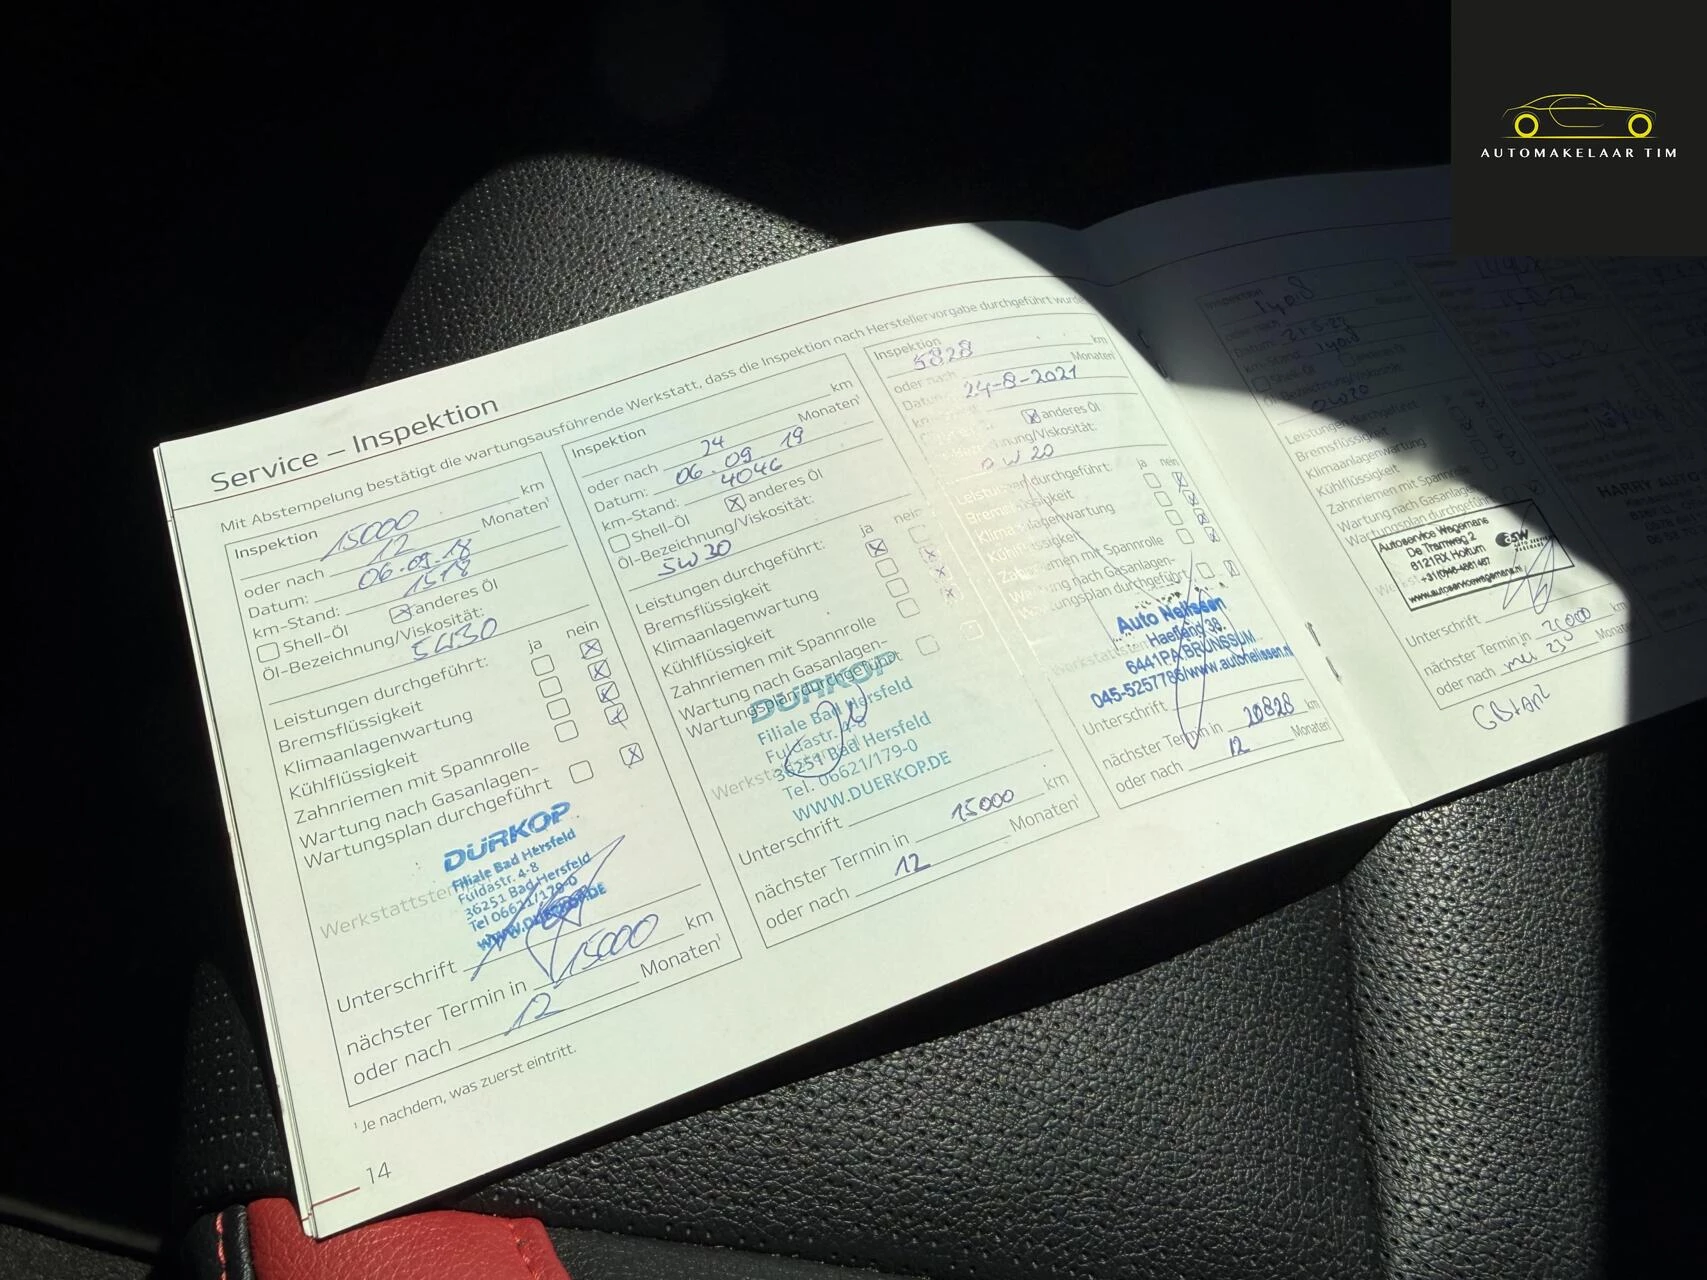 AUTOMAKELAAR TIM
Service – Inspektion
Mit Abstempelung bestätigt die wartungsausführende Werkstatt, dass die Inspektion nach Herstellervorgabe durchgeführt wurde
Inspektion 15000 km
oder nach 12 Monaten¹
Datum: 06.09.18
km-Stand: 1518
Shell-Öl anderes Öl
Öl-Bezeichnung/Viskosität:
5W30
Leistungen durchgeführt: ja nein
Bremsflüssigkeit
Klimaanlagenwartung
Kühlflüssigkeit
Zahnriemen mit Spannrolle
Wartung nach Gasanlagen-
Wartungsplan durchgeführt
DÜRKOP
Filiale Bad Hersfeld
Fuldastr. 4-8
36251 Bad Hersfeld
Tel 06621/179-0
WWW.DUERKOP.DE
Unterschrift
nächster Termin in 15000 km
oder nach 12 Monaten¹
¹ Je nachdem, was zuerst eintritt.
14
Inspektion km
oder nach 24 Monaten¹
Datum: 06.09.19
km-Stand: 4046
Shell-Öl anderes Öl
Öl-Bezeichnung/Viskosität:
5W30
Leistungen durchgeführt: ja nein
Bremsflüssigkeit
Klimaanlagenwartung
Kühlflüssigkeit
Zahnriemen mit Spannrolle
Wartung nach Gasanlagen-
Wartungsplan durchgeführt
DÜRKOP
Filiale Bad Hersfeld
Fuldastr. 4-8
36251 Bad Hersfeld
Tel. 06621/179-0
WWW.DUERKOP.DE
Unterschrift
nächster Termin in 15000 km
oder nach 12 Monaten¹
Inspektion 5828 km
oder nach Monaten¹
Datum: 24-8-2021
anderes Öl
0W20
Leistungen durchgeführt: ja nein
Bremsflüssigkeit
Klimaanlagenwartung
Kühlflüssigkeit
Zahnriemen mit Spannrolle
Wartung nach Gasanlagen-
Wartungsplan durchgeführt
Auto Nelissen
Haefland 38.
6441PA BRUNSSUM
045-5257786/www.autonelissen.nl
Unterschrift
nächster Termin in 20828 km
oder nach 12 Monaten¹
Inspektion 1408 km
oder nach
Datum:
km-Stand:
Shell-Öl
Öl-Bezeichnung/Viskosität:
0W20
Leistungen durchgeführt
Bremsflüssigkeit
Klimaanlagenwartung
Kühlflüssigkeit
Zahnriemen mit Spannrolle
Wartung nach Gasanlagen-
Wartungsplan durchgeführt
Autoservice Wagemans
De Tramweg 2
asw
www.autoservicewagemans.nl
Unterschrift
nächster Termin in km
oder nach mei 23 Monaten
HARRY AUTO